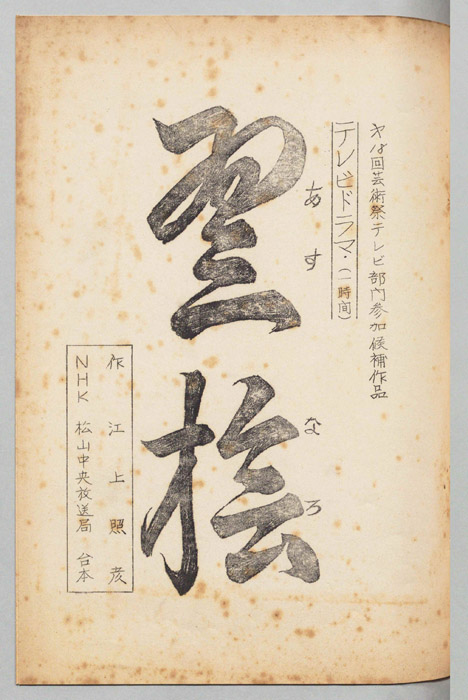 才18回芸術祭テレビ部門参加候補作品
テレビドラマ・(一時間)
あすなろ
翌桧
作 江上照彦
NHK 松山中央放送局 台本